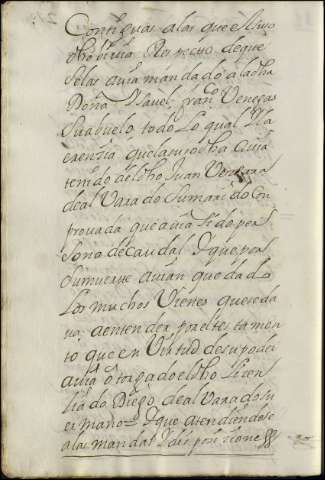 Contiguas a las que el suso
dho biuia Respecto de que
se las auia mandado a la dha
Doña Ysavel franco Venegas
su abuelo, todo lo qual La
erenzia que la suso dha auia
tenido del dho Juan Ventura
de al Vara do su marido Con
provada que auia sido per
sona de caudal Y que por
su muerte auian quedado
los muchos Vienes que se da
van a entender por el testamen
to que en Virtud de su poder
auia otorgado el dho Licen
ziado Diego de al Vara do su
ermano Y que atendiendose
a las mandas Y disposiziones